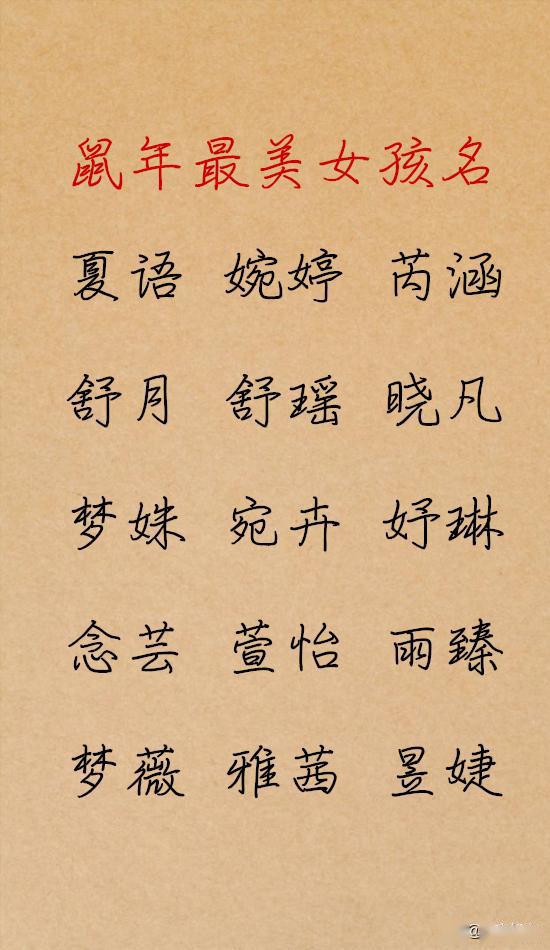 鼠年最美女孩名
夏语 婉婷 芮涵
舒月 舒瑶 晓凡
梦姝 宛卉 妤琳
念芸 萱怡 雨臻
梦薇 雅茜 昱婕
@